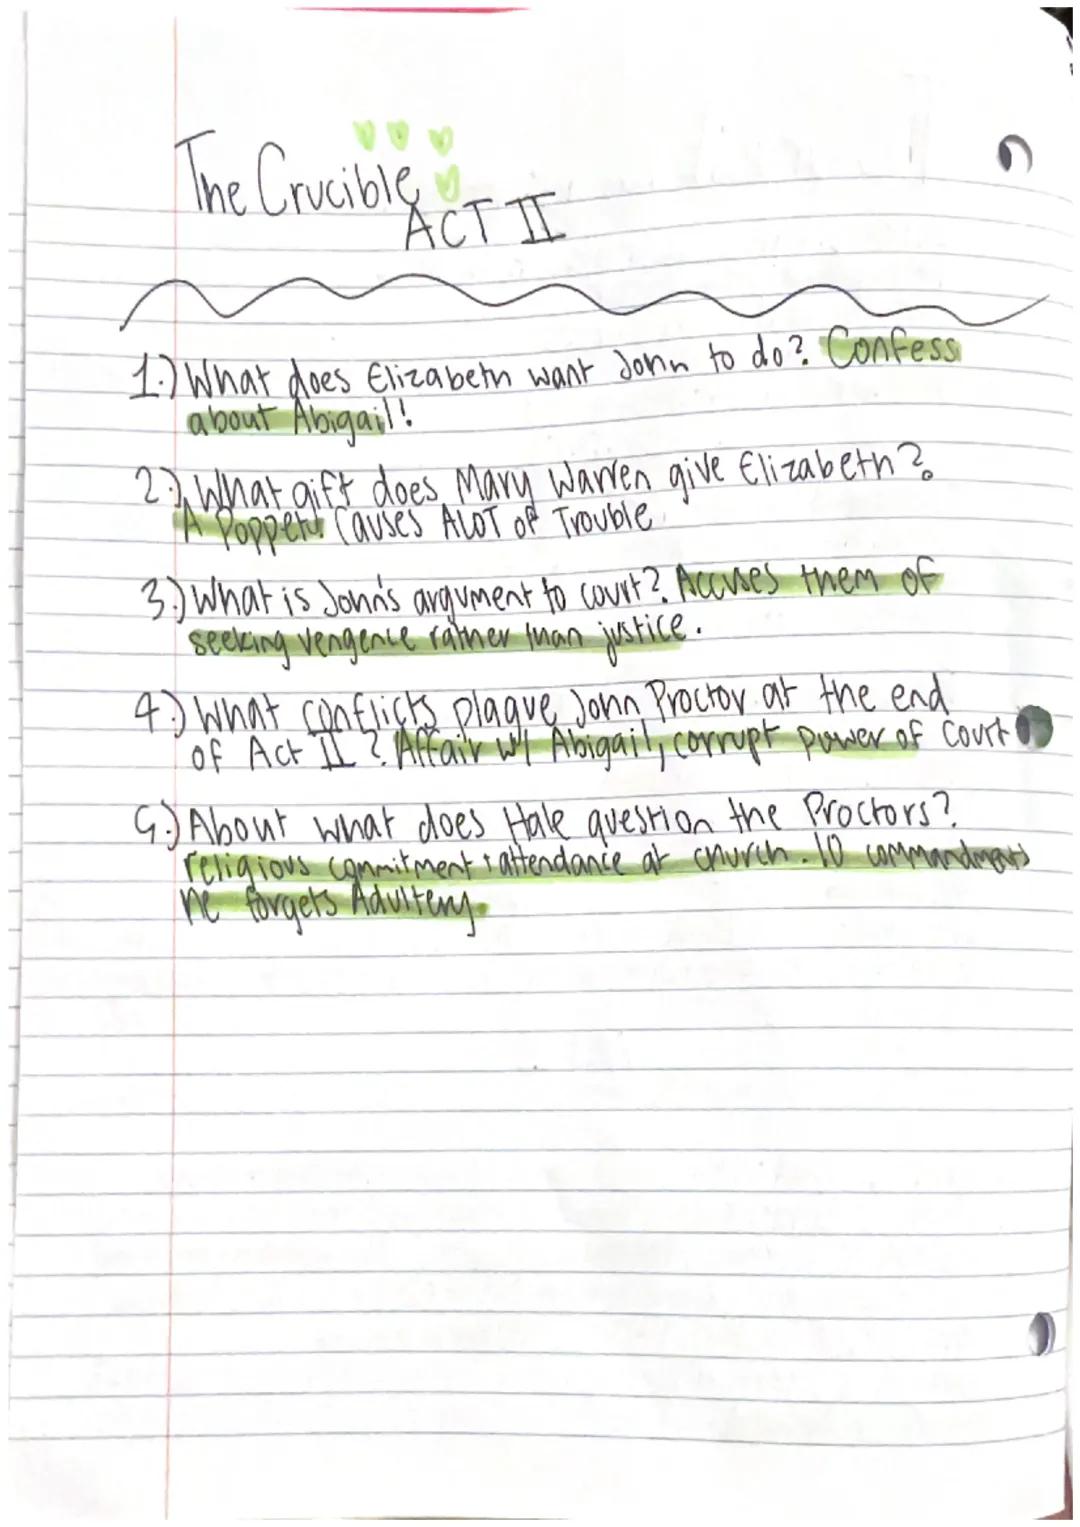 The Crucible
ACT II
1.) What does Elizabeth want John to do? Confess
about Abigail!
2.) What gift does Mary Warren give Elizabeth?
A Poppet! Causes ALOT of Trouble
3.) What is John's argument to court? Accuses them of
seeking vengence rather than justice.
4.) What conflicts plague John Proctor at the end
of Act II? Affair w/ Abigail, corrupt power of court
5.) About what does Hale question the Proctors?
religious commitment + attendance at church. 10 commandments
he forgets Adultery.